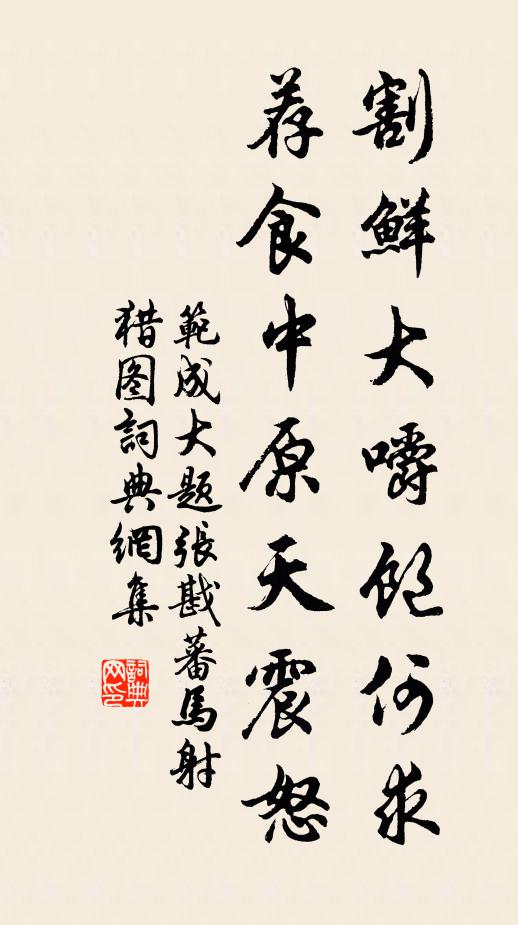 割鮮大嚼飽何求
荐食中原天震怒
範成大題張戡蕃馬射
猎图詞典網集
詞典网印